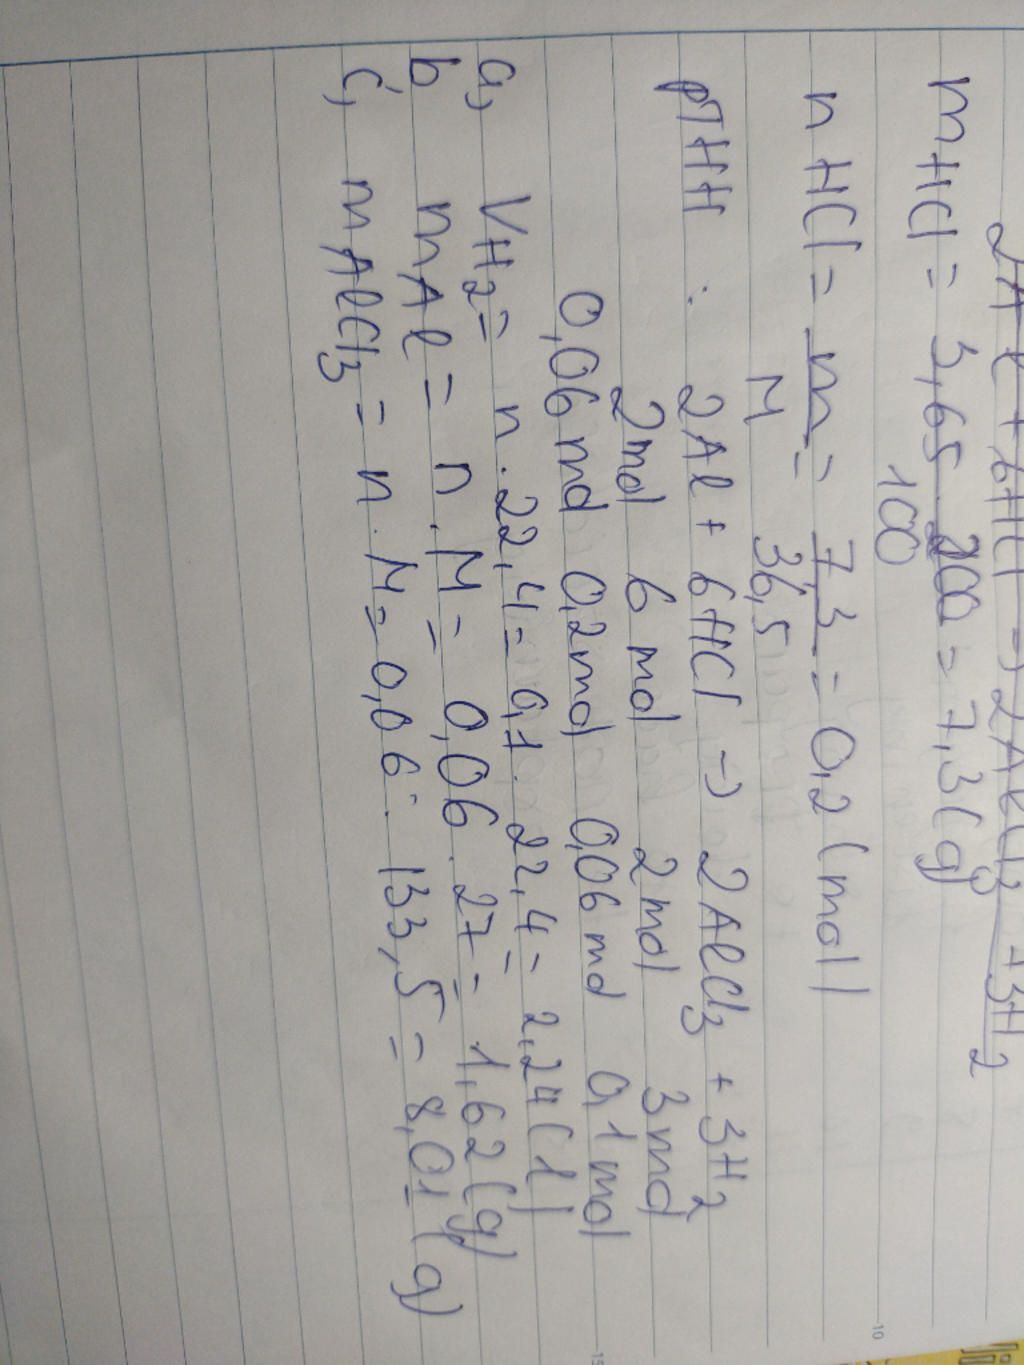 2Al + 6HCl → 2AlCl3 + 3H2
mHCl = 3,65 . 200 = 7,3 (g)
100
n HCl = m = 7,3 = 0,2 (mol)
M 36,5
PTHH : 2Al + 6HCl → 2AlCl3 + 3H2
2mol 6 mol 2mol 3mol
0,06 mol 0,2mol 0,06 mol 0,1 mol
a, VH2 = n . 22,4 = 0,1 . 22,4 = 2,24 (l)
b, mAl = n . M = 0,06 . 27 = 1,62 (g)
c, mAlCl3 = n . M = 0,06 . 133,5 = 8,01 (g)
10
15